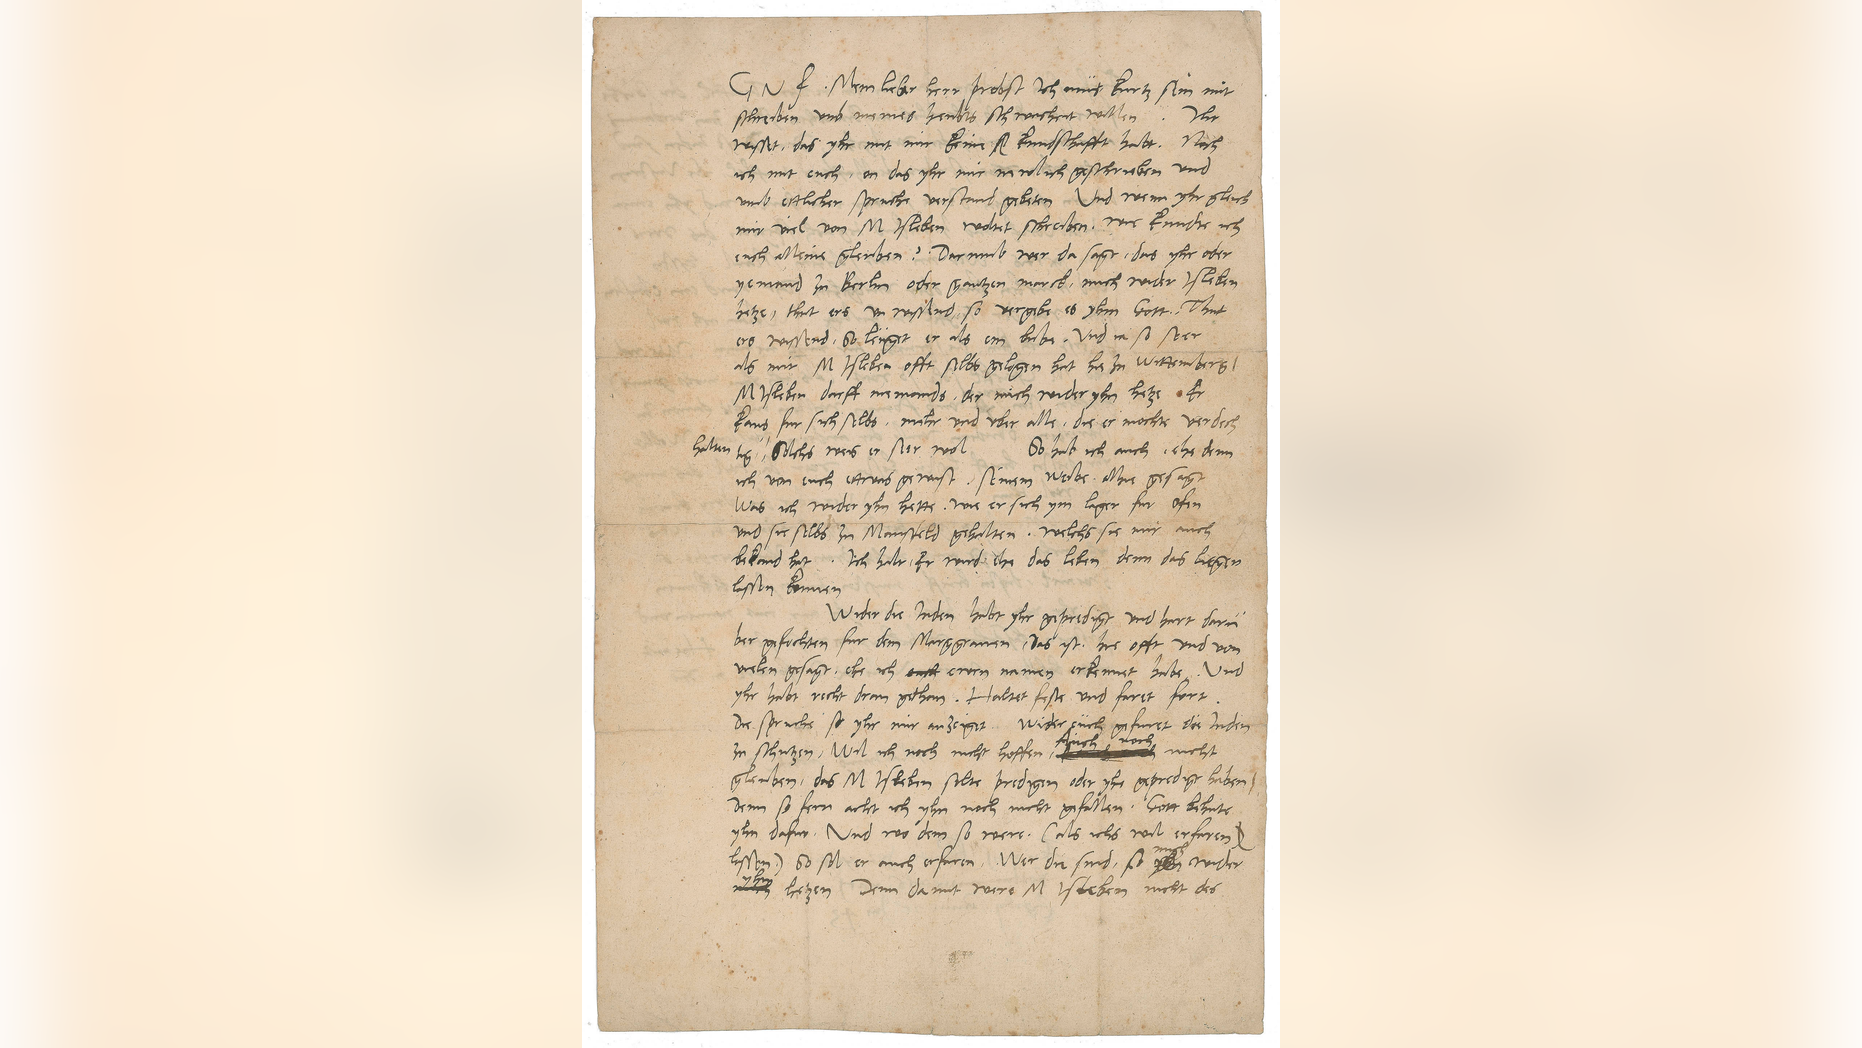 G N f. Mein lieber herr probst Ich mus kurtz sein mit
schreiben umb meines heubts schwacheit willen. Ihr
wisset, das yhr mit mir keine kundschafft habt. Noch
ich mit euch, on das yhr mir newlich geschrieben und
umb ettlicher spruche verstand gebeten Und wenn yhr gleich
mir viel von M Isleben woltet schreiben. wie kundte ich
euch alleine gleuben? Darumb wer da sagt, das yhr oder
yemand zu Berlin oder gantzen marck, mich wider Isleben
hetze, thut ers un wissend, so vergebe es yhm Gott. Thut
ers wissend, So leuget er als ein bube. Und ia so seer
als mir M Isleben offt selbs gelogen hat hie zu Wittemberg
M Isleben darff niemands, der mich wider yhn hetze. Er
kans fur sich selbs, mehr und uber alle, die er mochte verdech
halten tig, Solchs weis er seer wol So hab ich auch, ehe denn
ich von euch ettwas gewust, seinem Weibe alhie gesagt
Was ich wider yhn hette. wie er sich ym lager fur Ofen
und sie selbs zu Mansfeld gehalten. welchs sie mir auch
bekand hat. Ich halt, Er wird ehe das leben denn das liegen
lassen konnen
Wider die Juden habt yhr gepredigt und hart daru
ber gefochten fur dem Marggraven, Das ist hie offt und von
vielen gesagt, ehe ich ewrn namen erkennet habe. Und
yhr habt recht dran gethan. Haltet feste und faret fort.
Die spruche so yhr mir anzeiget Wider euch gefurt die Juden
zu schutzen, Wil ich noch nicht hoffen, Auch noch nicht
gleuben, das M Isleben solte predigen oder yhe gepredigt haben
Denn so fern acht ich yhn noch nicht gefallen. Gott behute
yhn dafur. Und wo dem so were. (als ichs wil erfaren
lassen) So sol er auch erfaren, Wer die sind, so mich wider
yhn hetzen Denn damit were M Isleben nicht des